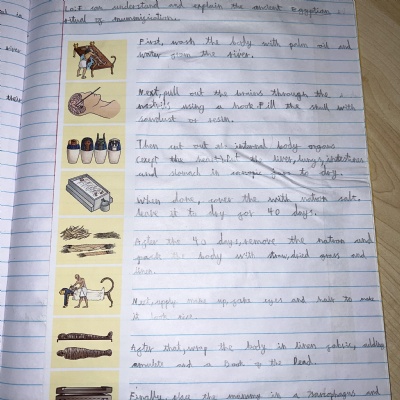 L.O: I can understand and explain the ancient Egyptian
ritual of mummification.
First, wash the body with palm oil and
water from the river.
Next, pull out the brains through the
nostrils using a hook. Fill the skull with
sawdust or resin.
Then cut out all internal body organs
Except the heart. Put the liver, lungs, intestines
and stomach in canopic jars to dry.
When done, cover the with natron salt.
leave it to dry for 40 days.
After the 40 days, remove the natron and
pack the body with straw, dried grass and
linen.
Next, apply make up, fake eyes and hair to make
it look nice.
After that, wrap the body in linen fabric, adding
amulets and a Book of the Dead.
Finally, place the mummy in a sarcophagus and